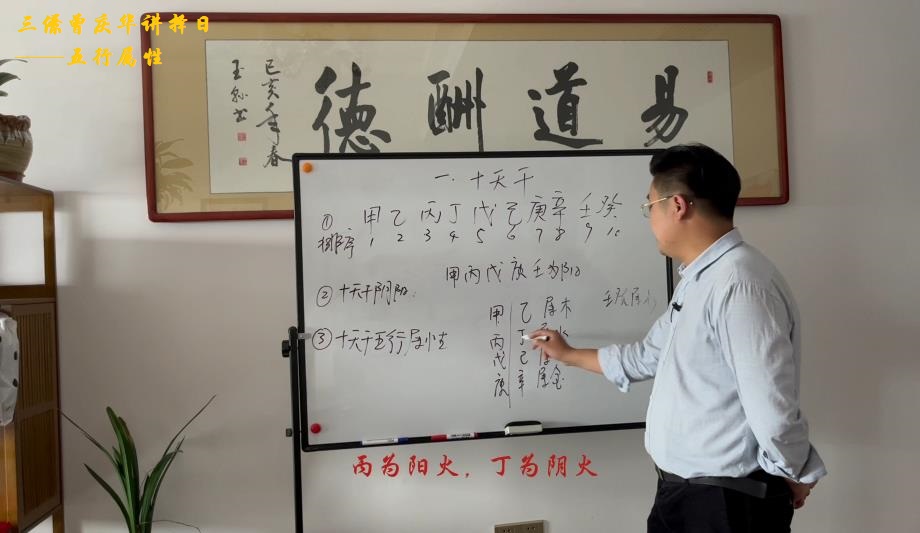 三缘曹庆华讲择日
——五行属性
易道酬德
己亥年春
一·十天干
① 甲乙丙丁戊己庚辛壬癸
排序 1 2 3 4 5 6 7 8 9 10
甲丙戊庚壬为阳
② 十天干阴阳：
甲 乙 属木
壬癸属水
③ 十天干五行属性
丙 丁
戊 己 属
庚 辛 属金
丙为阳火，丁为阴火